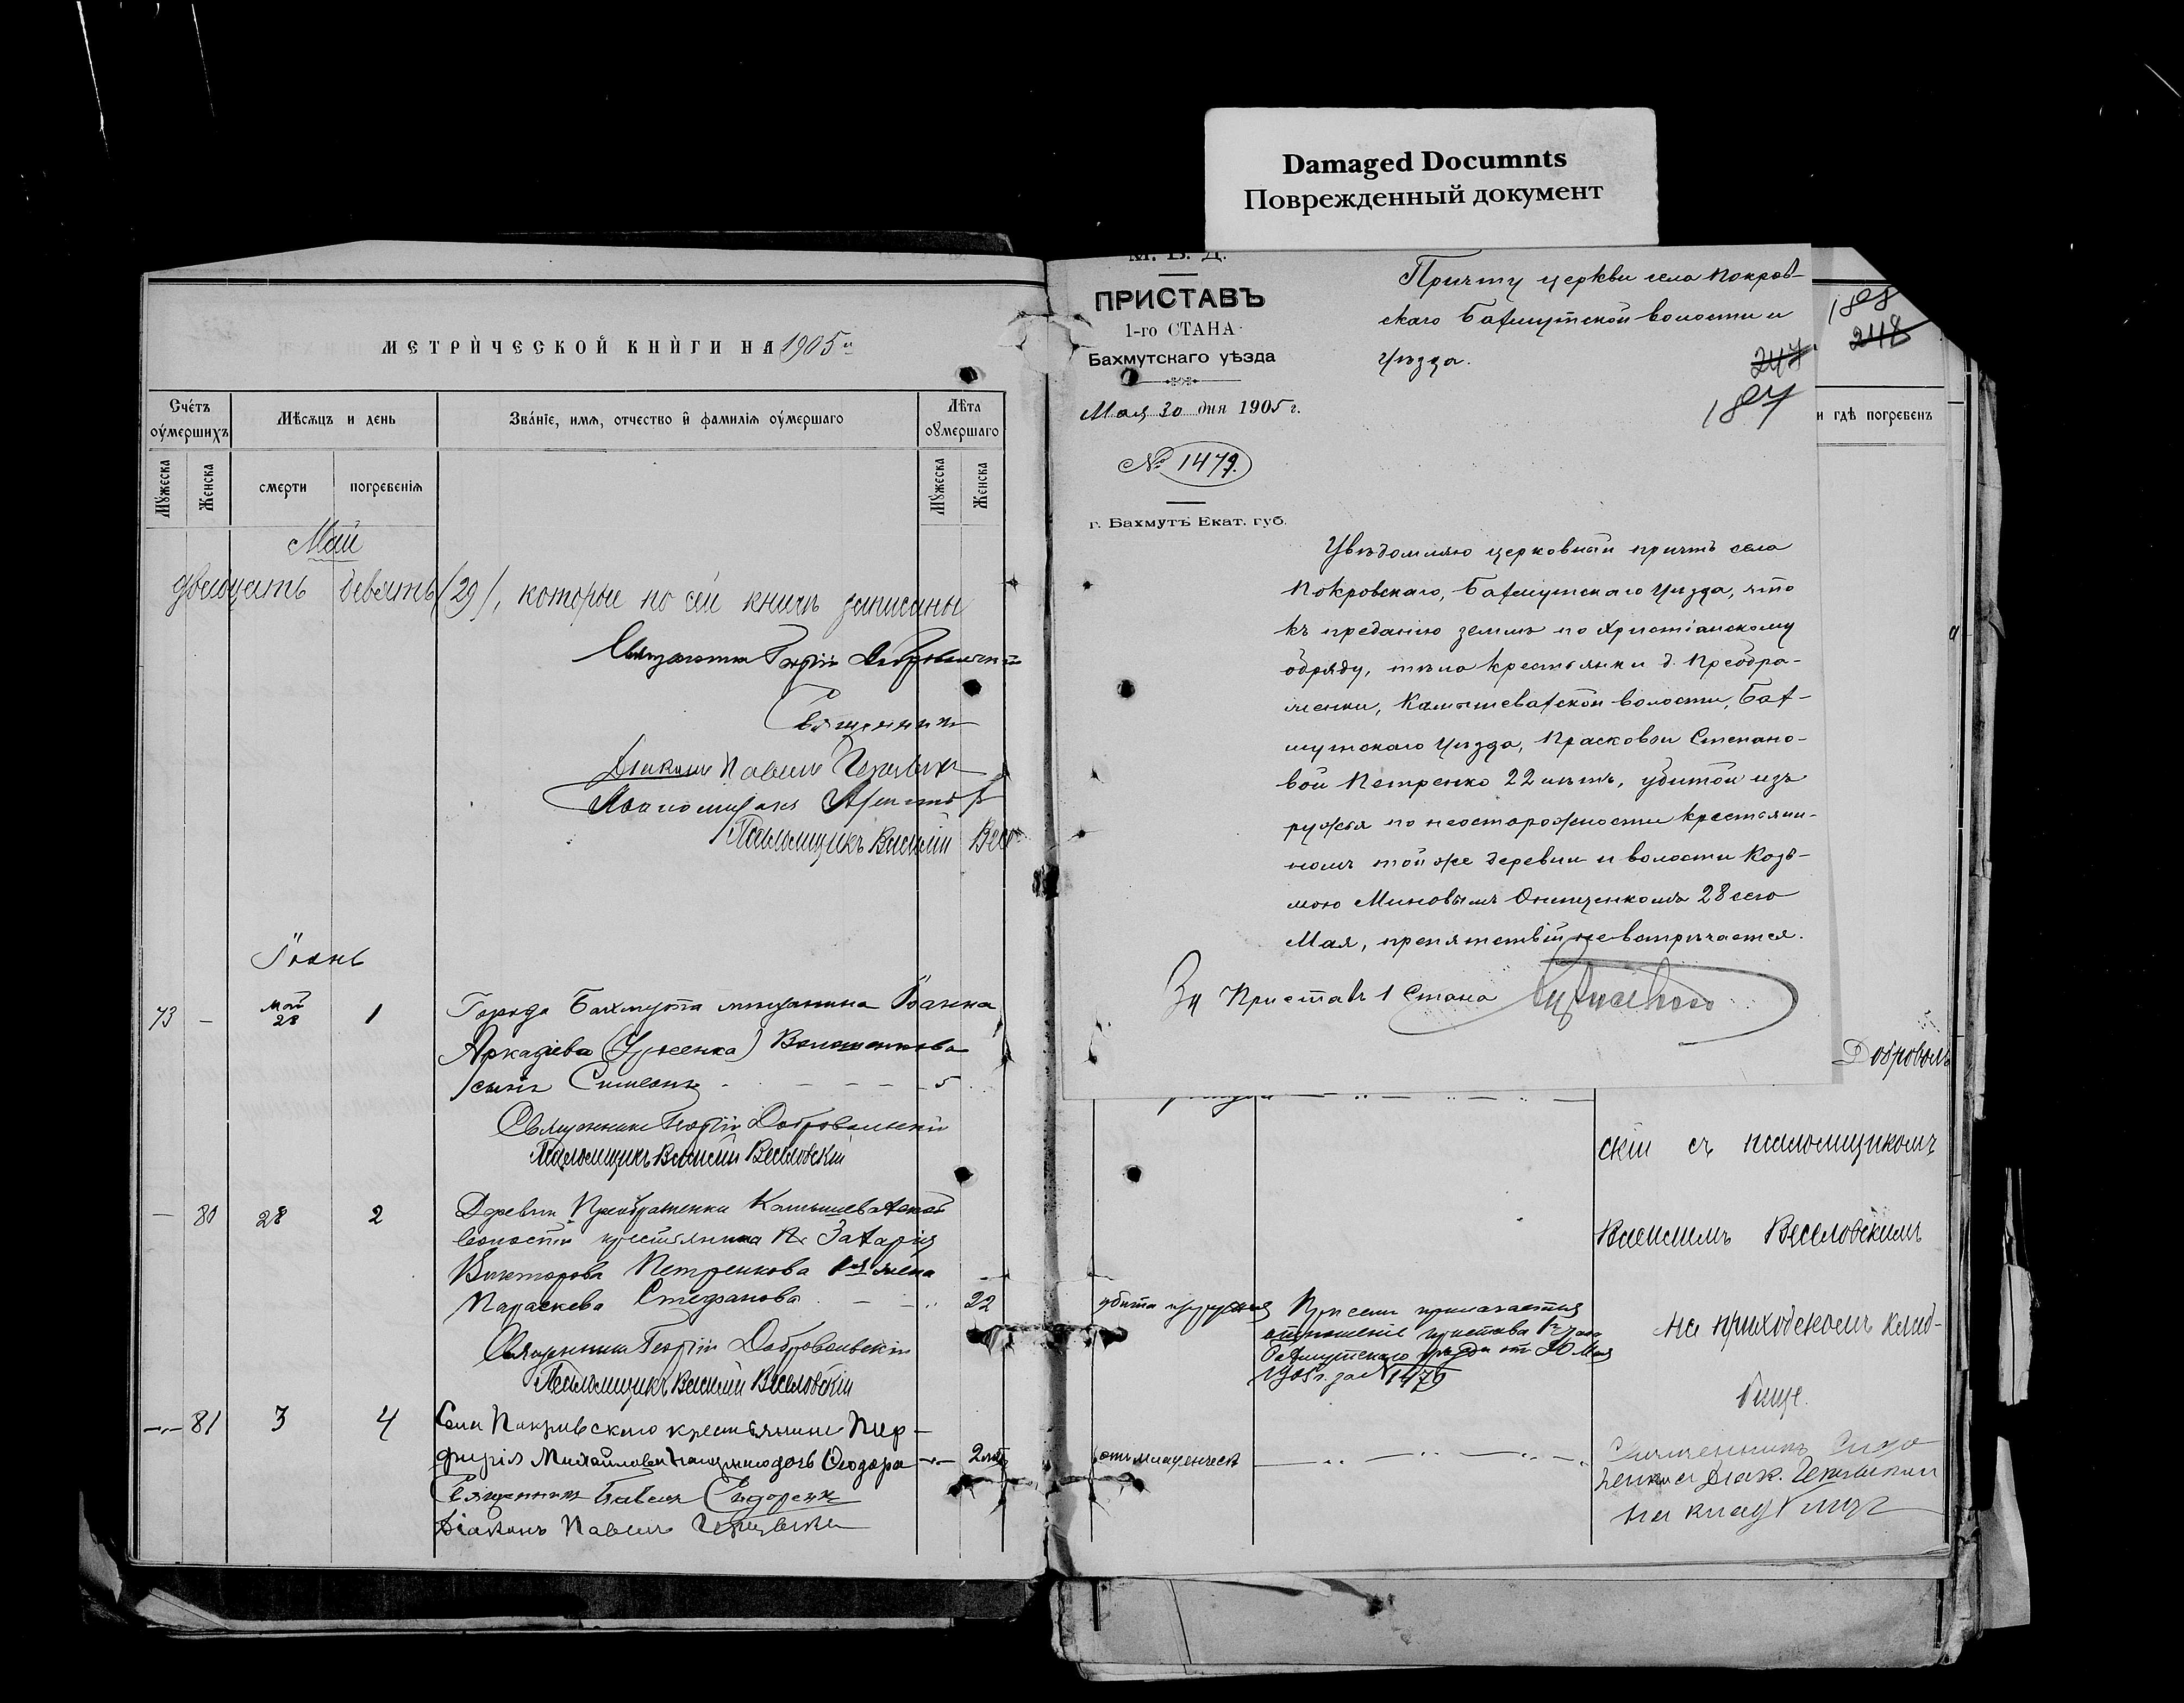 Damaged Documnts
Поврежденный документ
МЕТРИ́ЧЕСКОЙ КНИ́ГИ НА 1905 й
Сче́тъ оу҆ме́ршихъ
Мѣ́сѧцъ и день
Зва́нїе, имѧ, отчество и҆ фамилїѧ оу҆ме́ршаго
Лѣта оу҆мершаго
Мꙋ́жеска
Женска
смерти
погребенїѧ
Мꙋ́жеска
Женска
Май
двадцать девять (29), которые по сей книгѣ записаны
Священникъ Георгій Добровольскій
Священникъ
Діаконъ Павелъ
Псаломщикъ
Псаломщикъ Василій Вес
Іюнь
73 — май 28 1 Города Бахмута мещанина Іоанна
Аркадіева (Удженка)
сынъ Симеонъ — — — 5
Священникъ Георгій Добровольскій
Псаломщикъ Василій Веселовскій
— 80 28 2 Деревни Преображенки Камышевахской
волости крестьянина Захарія
Викторова Петренкова жена
Параскева Стефанова — — 22
Священникъ Георгій Добровольскій
Псаломщикъ Василій Веселовскій
— 81 3 4 Села Покровскаго крестьянина Пор-
фирія Михайлова дочь Ѳеодора — 2
Священникъ Павелъ Сидоренко
Діаконъ Павелъ
М. В. Д.
ПРИСТАВЪ
1-го СТАНА
Бахмутскаго уѣзда
Мая 30 дня 1905 г.
№ 1479.
г. Бахмутъ Екат. губ.
Причту церкви села Покров-
скаго Бахмутской волости и
уѣзда.
247
187
188
248
и гдѣ погребенъ
Увѣдомляю церковный причтъ села
Покровскаго, Бахмутскаго уѣзда, что
къ преданію землѣ по христіанскому
обряду, тѣла крестьянки д. Преобра-
женки, Камышевахской волости, Бах-
мутскаго уѣзда, Прасковьи Степано-
вой Петренко 22 лѣтъ, убитой изъ
ружья по неосторожности крестьяни-
номъ той же деревни и волости Козь-
мою Миновымъ Онищенкомъ 28 сего
Мая, препятствій не встрѣчается.
За Приставъ 1 Стана
Доброволь
скій съ псаломщикомъ
Василіемъ Веселовскимъ
на приходскомъ клад-
бище.
убита изъ ружья
При семъ прилагается
отношеніе пристава 1го стана
Бахмутскаго уѣзда от 30 Мая
1905 г. за № 1479
отъ младенческ
Священникъ Сидо
ренко и Діак.
на кладбище